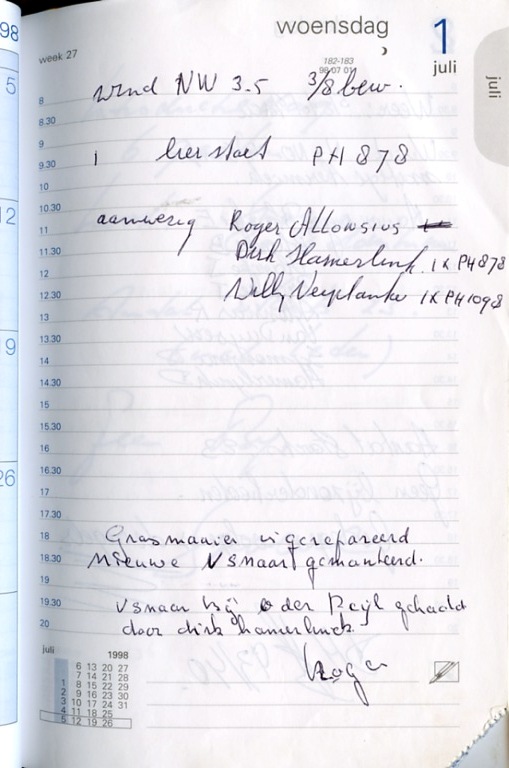 98
5
12
19
26
woensdag 1
week 27
182-183
98 07 01
juli
juli
8 wind NW 3.5 3/8 bew.
8.30
9
9.30 1 lierstart PH 878
10
10.30
11 aanwezig Roger Allowsius
11.30 Dirk Hamerlinck 1x PH 878
12
12.30 Willy Verplancke 1x PH 1098
13
13.30
14
14.30
15
15.30
16
16.30
17
17.30
18 Grasmaaier is gerepareerd
18.30 Nieuwe V snaar gemonteerd.
19
19.30 V snaar bij der Peyl gehaald
20 door dirk hamerlinck.
Roger
juli 1998
6 13 20 27
7 14 21 28
1 8 15 22 29
2 9 16 23 30
3 10 17 24 31
4 11 18 25
5 12 19 26